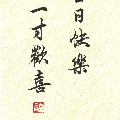 日快樂
一寸歡喜